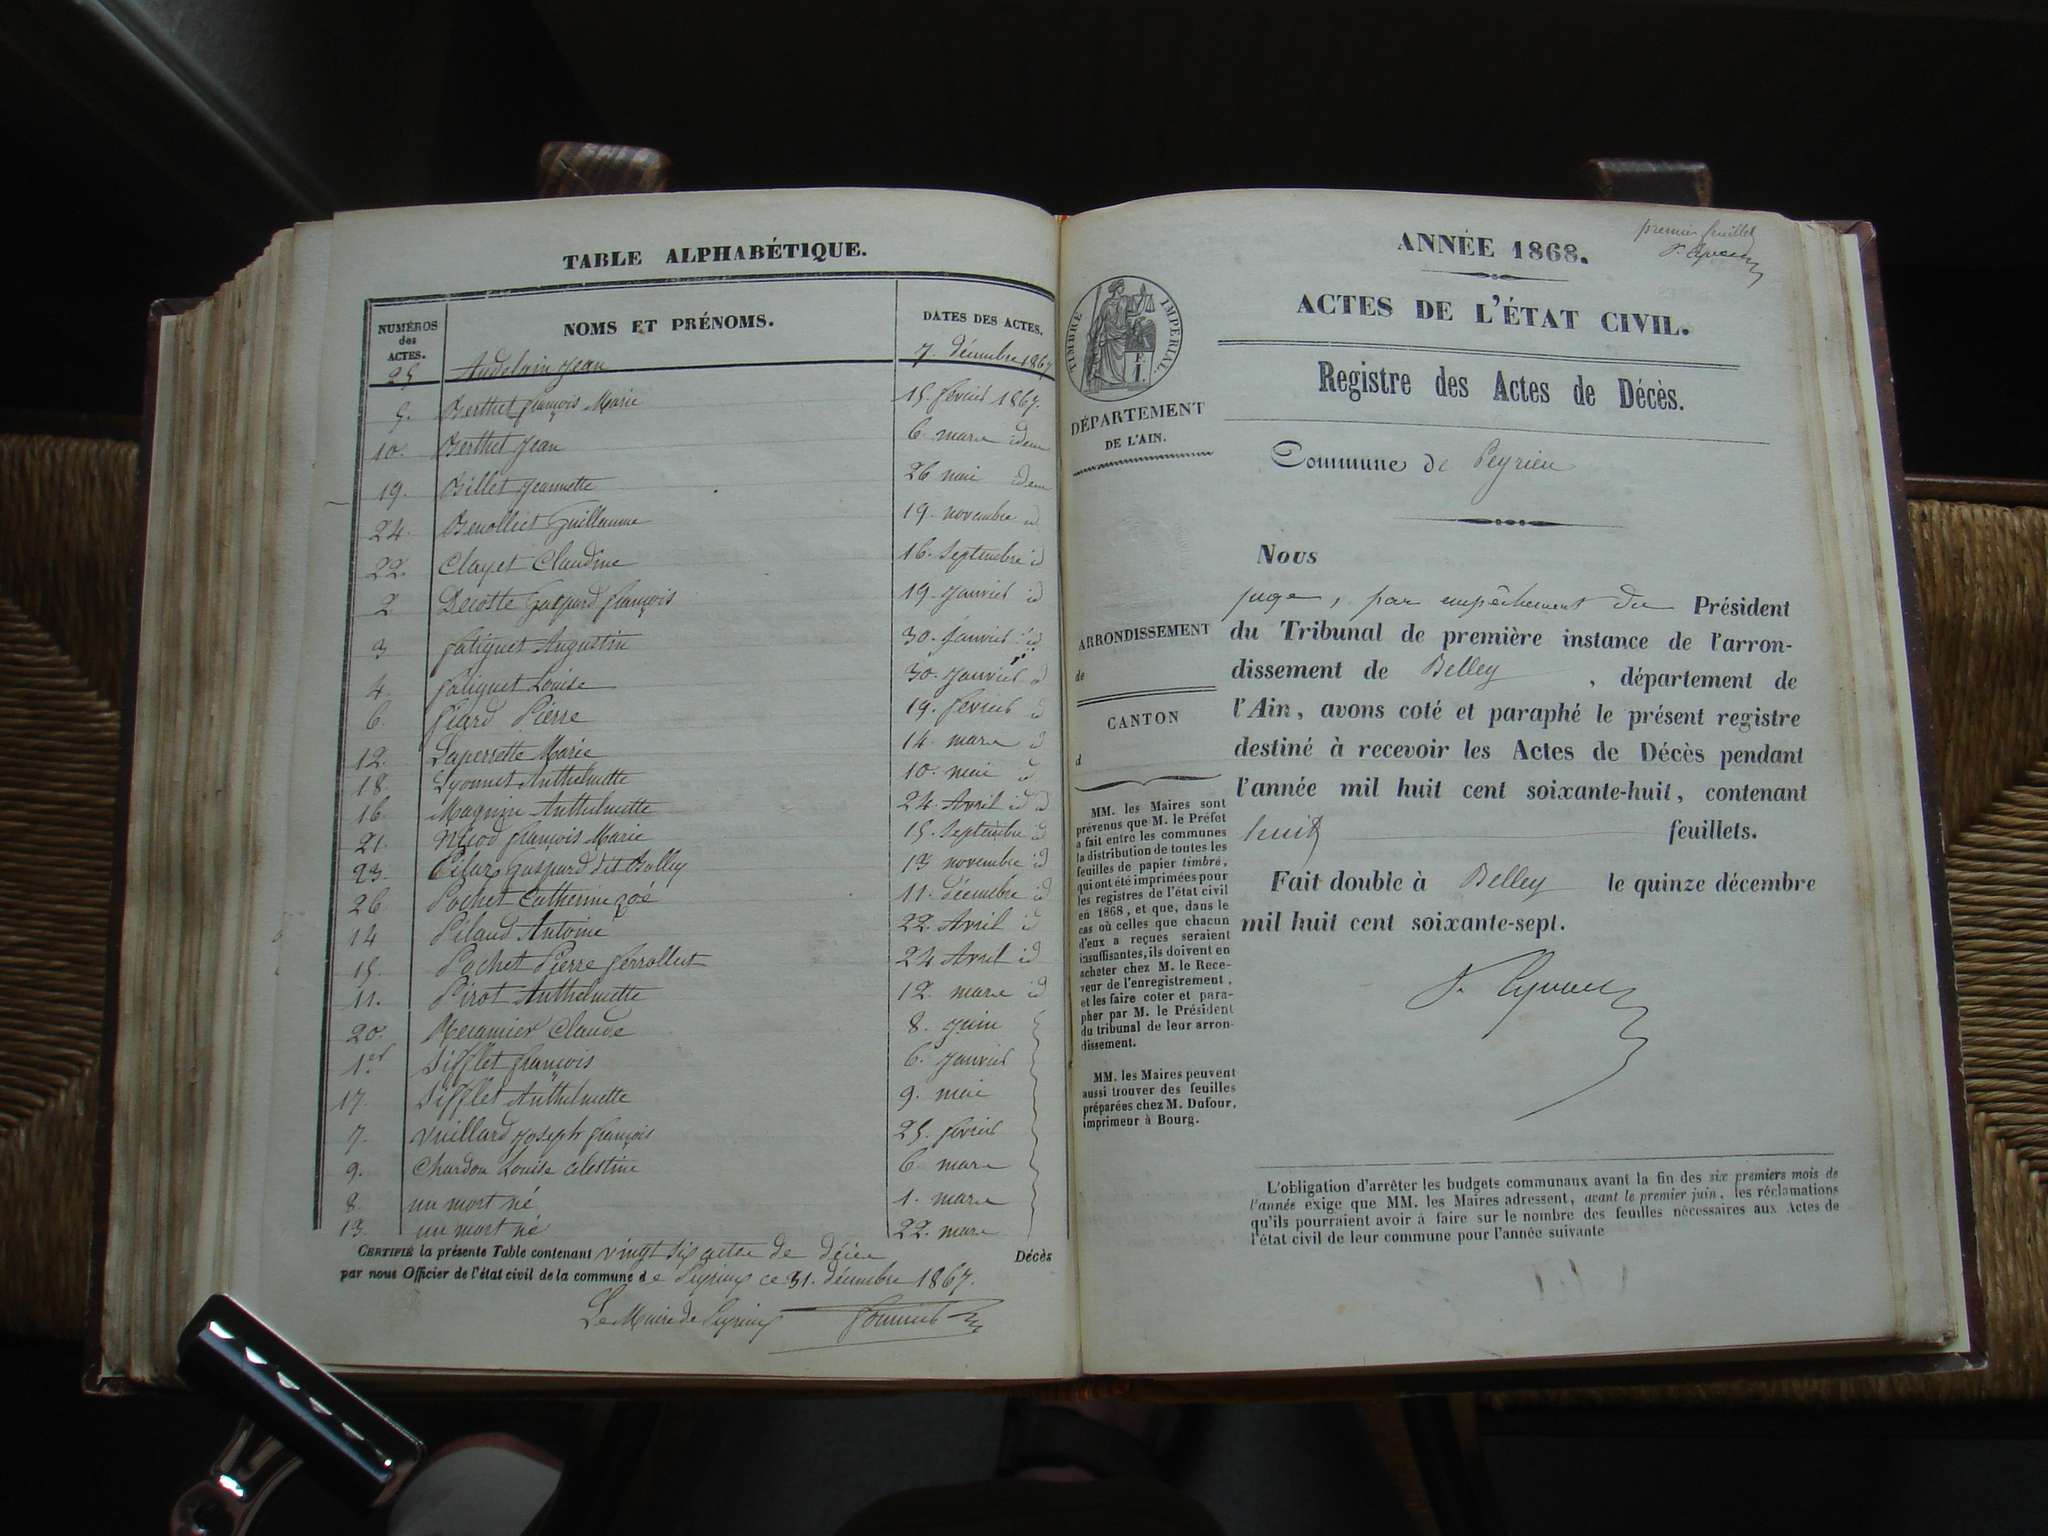 TABLE ALPHABÉTIQUE.
NUMÉROS des ACTES. NOMS ET PRÉNOMS. DATES DES ACTES.
25 Audelain Jean 7. décembre 1867
5. Berthet françois Marie 15. février 1867.
10. Berthet Jean 6. mars idem
19. Billet Jeannette 26 mai idem
24. Benolliet Guillaume 19. novembre id
22. Clayet Claudine 16. Septembre id
2 Decotte Gaspard françois 19. Janvier id
3 fatiguet Augustin 30. Janvier id
4. fatiguet Louise 30. Janvier id
6. fiard Pierre 19. février id
12. Laperrette Marie 14. mars id
18. Lyonnet Anthelmette 10. mai id
16. Magnin Anthelmette 24. Avril id id
21. Nicod françois Marie 15. Septembre id
23. Pilaz Gaspard dit Bolley 13 novembre id
26. Pochet Catherine zoé 11. décembre id
14 Pilaud Antoine 22. Avril id
15. Pochet Pierre ferrollet 24 Avril id
11. Pirot Anthelmette 12. mars id
20. Recamier Claude 8. Juin
1er Sifflet françois 6. Janvier
17. Sifflet Anthelmette 9. mai
7. Vuillard Joseph françois 25. février
9. Chardon Louise celestine 6 mars
8. un mort né 1. mars
13. un mort né 22. mars
CERTIFIÉ la présente Table contenant vingt six actes de décès Décès
par nous Officier de l'état civil de la commune de Peyrieux ce 31. décembre 1867.
Le Maire de Peyrieux
premier feuillet
ANNÉE 1868.
ACTES DE L'ÉTAT CIVIL.
TIMBRE IMPÉRIAL
Registre des Actes de Décès.
DÉPARTEMENT
DE L'AIN.
Commune de Peyrieu
Nous
juge, par empêchement du Président
du Tribunal de première instance de l'arron-
dissement de Belley, département de
l'Ain, avons coté et paraphé le présent registre
destiné à recevoir les Actes de Décès pendant
l'année mil huit cent soixante-huit, contenant
huit feuillets.
Fait double à Belley le quinze décembre
mil huit cent soixante-sept.
ARRONDISSEMENT
de
CANTON
d
MM. les Maires sont
prévenus que M. le Préfet
a fait entre les communes
la distribution de toutes les
feuilles de papier timbré,
qui ont été imprimées pour
les registres de l'état civil
en 1868, et que, dans le
cas où celles que chacun
d'eux a reçues seraient
insuffisantes, ils doivent en
acheter chez M. le Rece-
veur de l'enregistrement,
et les faire coter et para-
pher par M. le Président
du tribunal de leur arron-
dissement.
MM. les Maires peuvent
aussi trouver des feuilles
préparées chez M. Dufour,
imprimeur à Bourg.
L'obligation d'arrêter les budgets communaux avant la fin des six premiers mois de
l'année exige que MM. les Maires adressent, avant le premier juin, les réclamations
qu'ils pourraient avoir à faire sur le nombre des feuilles nécessaires aux Actes de
l'état civil de leur commune pour l'année suivante